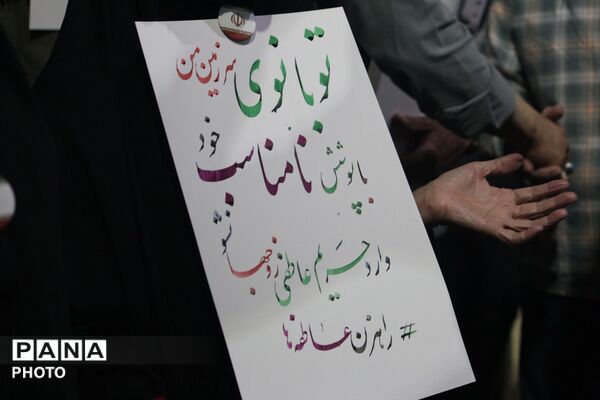 تو بانوی سرزمین من
با پوشش نامناسب خود
وارد حریم عاطفی زوجها نشو
# راهزن عاطفه‌ها
PANA
PHOTO